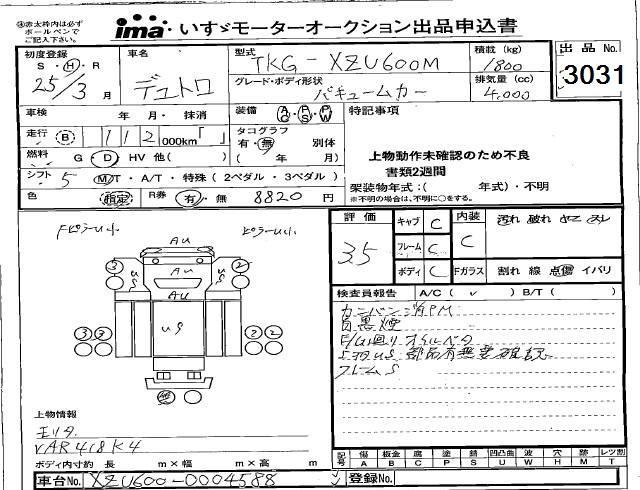 ④赤太枠内は必ず
ボールペンで
ご記入下さい。
ima いすゞモーターオークション出品申込書
初度登録
S・H・R
25/3月
車名
デュトロ
型式
TKG-XZU600M
グレード・ボディ形状
バキュームカー
積載(kg)
1800
排気量(cc)
4,000
出品No.
3031
車検 年・月・抹消
走行 B 112000km「 」
燃料 G・D・HV 他( )
シフト 5 M/T・A/T・特殊(2ペダル・3ペダル)
色 指定 R券 有・無 8820円
装備 AC・PS・PW
タコグラフ
有・無 別体
( 年 月)
特記事項
上物動作未確認のため不良
書類2週間
架装物年式:( 年式)・不明
※不明の場合は、不明に○をする。
Fピラー小
ピラー小
AU
US
US
AU
US
3 2
3 3 2 2
上物情報
モリタ
VAR418K4
ボディ内寸約 長 m×幅 m×高 m
車台No. XZU600-0004588
登録No.
評価
3.5
キャブ C
フレーム C
ボディ C
内装
C
Fガラス
汚れ 破れ コゲ スレ
割れ 線 点傷 イバリ
検査員報告 A/C( ✓ ) B/T( )
カンバン消PM
白黒煙
F/G廻りオイルベタ
部品有無要確認
フレームS
記号
傷 板金 腐 塗 錆 凹凸曲 波 穴 跡 レツ割
A B C P S U W H M T